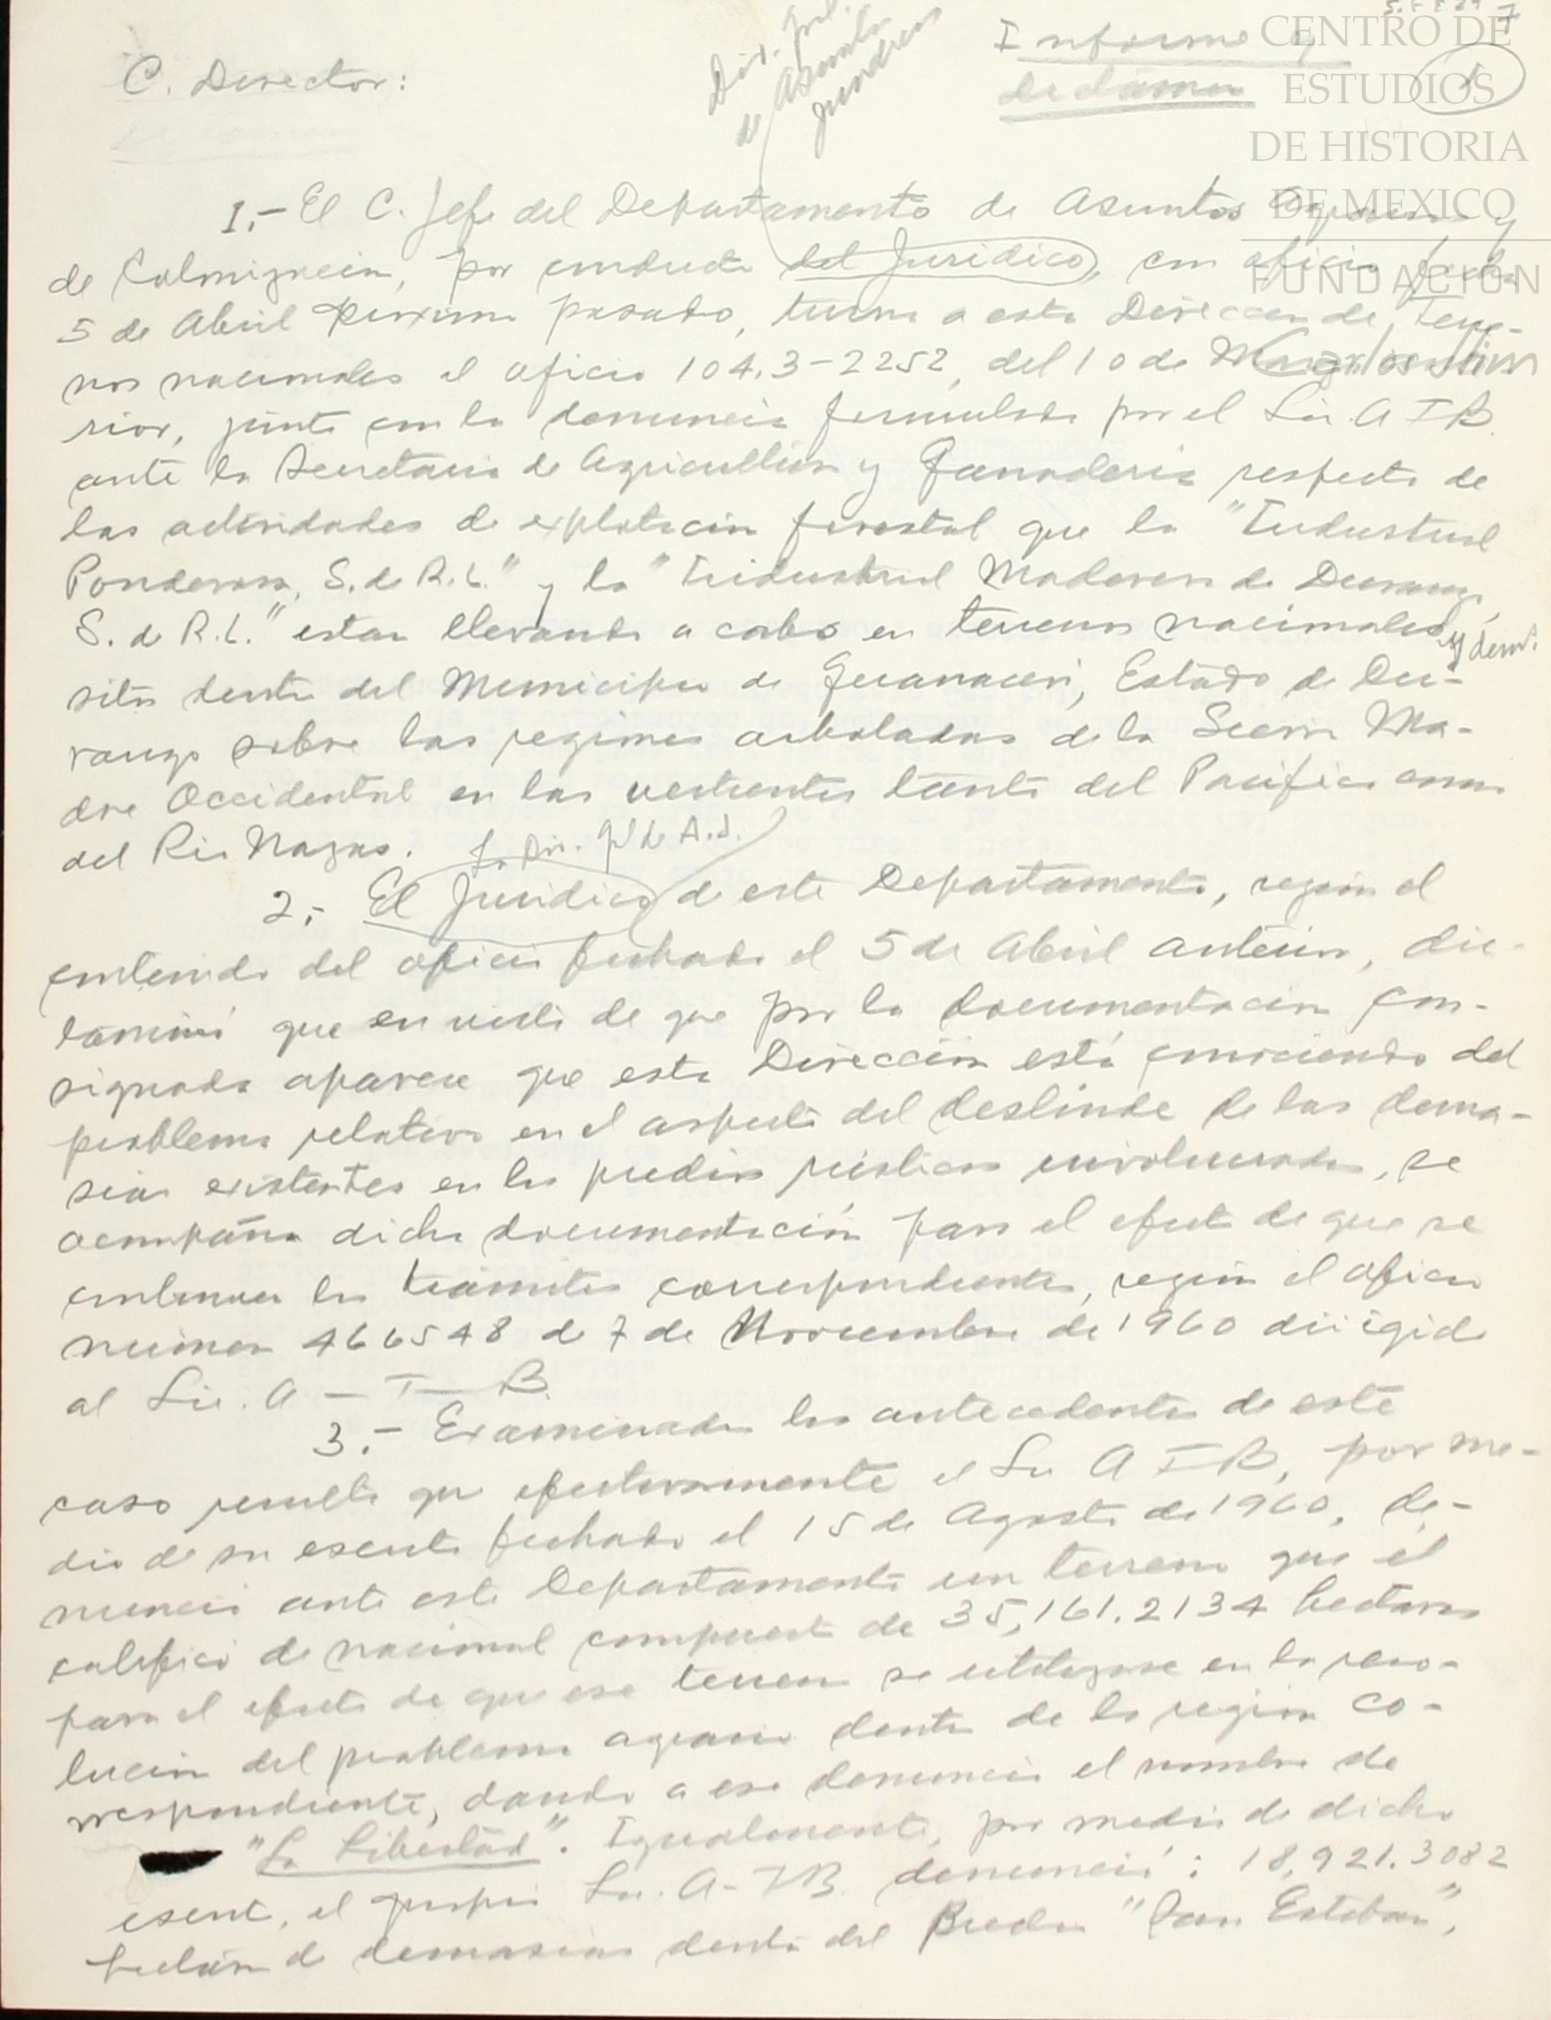 CENTRO DE
ESTUDIOS
DE HISTORIA
DE MEXICO
FUNDACIÓN
Carlos Slim
Informe y
Dictamen
1
C. Director:
Dir. Gral.
de Asuntos
Jurídicos
1.- El C. Jefe del Departamento de Asuntos Agrarios y
de Colonización, por conducto del Jurídico, con oficio fecha
5 de Abril próximo pasado, turnó a esta Dirección de Terre-
nos nacionales el oficio 104.3-2252, del 10 de Marzo ante-
rior, junto con la denuncia formulada por el Lic. A T B.
ante la Secretaría de Agricultura y Ganadería respecto de
las actividades de explotación forestal que la "Industrial
Ponderosa, S. de R.L." y la "Industrial Maderera de Durango,
S. de R.L." están llevando a cabo en terrenos nacionales y dem.
sitos dentro del Municipio de Guanaceví, Estado de Du-
rango sobre las regiones arboladas de la Sierra Ma-
dre Occidental en las vertientes tanto del Pacífico como
del Río Nazas.
La Dir. Gral de A.J.
2.- El Jurídico de este Departamento, según el
contenido del oficio fechado el 5 de Abril anterior, dic-
taminó que en vista de que por la documentación con-
signada aparece que esta Dirección está conociendo del
problema relativo en el aspecto del deslinde de las dema-
sías existentes en los predios rústicos involucrados, se
acompaña dicha documentación para el efecto de que se
continúen los trámites correspondientes, según el oficio
número 466548 de 7 de Noviembre de 1960 dirigido
al Lic. A - T - B.
3.- Examinados los antecedentes de este
caso resulta que efectivamente el Lic A T B, por me-
dio de su escrito fechado el 15 de Agosto de 1960, de-
nunció ante este Departamento un terreno que él
calificó de nacional compuesto de 35,161.2134 hectáreas
para el efecto de que ese terreno se utilizase en la reso-
lución del problema agrario dentro de la región co-
rrespondiente, dando a esa denuncia el nombre de
"La Libertad". Igualmente, por medio de dicho
escrito, el propio Lic. A-TB. denunció: 18,921.3082
hectáreas de demasías dentro del Predio "San Esteban",